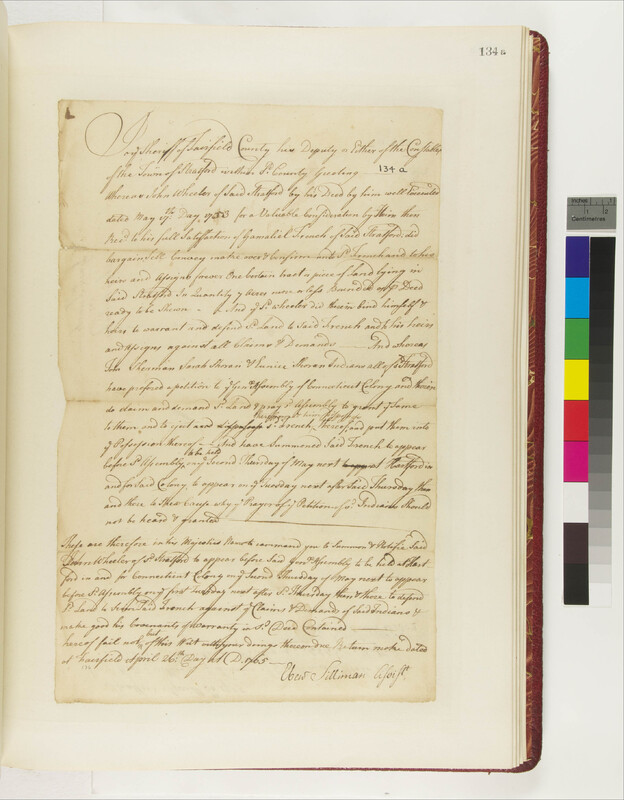 134 a
To ye Sheriff of Fairfield County his Deputy or Either of the Constables
of the Town of Stratford within sd. County Greeting
134 a
Whereas John Wheeler of Said Stratford by his Deed by him well Executed
dated May 17th Day, 1753 for a Valuable Consideration by Him then
Recd to his full Satisfaction of Gamaliel French of Said Stratford did
bargain Sell Convey make over & Confirm unto sd. French and to his
heirs and Assigns forever One Certain tract or piece of Land lying in
Said Stratford In Quantity 7 Acres more or less Bounded as p Deed
ready to be Shewn - And ye sd. Wheeler did therein bind himself &
heirs to warrant and defend sd. Land to Said French and his heirs
and Assignes against all Claims & Demands And whereas
Tom Sherman Sarah Shoran & Eunice Shoran Indians all of sd. Stratford
have prefered a petition to ye Genll Assembly of Connecticut Colony and therein
do claim and demand sd. Land & pray sd. Assembly to grant ye Same
to them, and to eject and dispossess sd. French, thereof and put them into
ye Possession thereof - And have Summoned Said French to appear
before sd. Assembly on ye Second Thursday of May next to be held at Hartford in
and for Said Colony to appear on ye Tuesday next after Said Thursday then
and there to Shew Cause why ye Prayer of ye Petition of sd. Indians Should
not be heard & granted
These are therefore in his Majesties Name to command you to Summon & Notifie Said
John Wheeler of sd. Stratford to appear before Said Genll Assembly to be held at Hart
ford in and for Connecticut Colony on ye Second Thursday of May next to appear
before sd. Assembly on ye first Tuesday next after sd. Thursday then & there to defend
sd. Land to Said French against ye Claims & Demands of Said Indians &
make good his Covenants of Warranty in sd. Deed Contained
hereof fail not, but of this Writ with your doings thereon due Return make dated
at Fairfield April 26th Day A D. 1765
Ebenr Silliman Assist
Inches
Centimetres